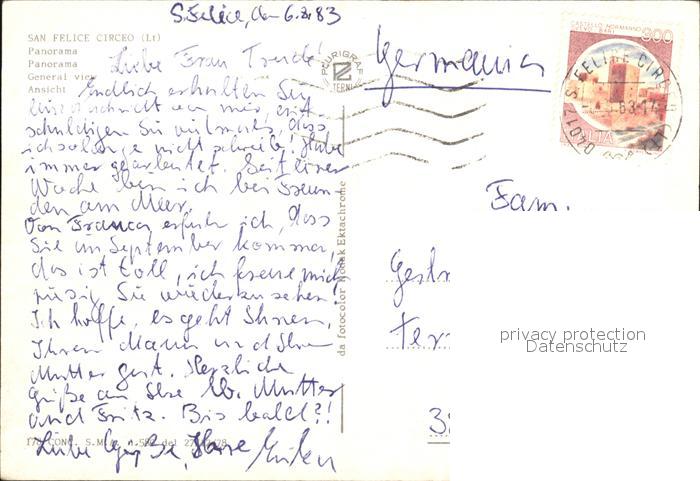 S. Felice, den 6.8.83
SAN FELICE CIRCEO (Lt)
Panorama
Panorama
General view
Ansicht
Liebe Frau
Endlich erhalten Sie
Nachricht von mir, ent-
schuldigen Sie vielmals, dass
ich solange nicht schreibe, habe
immer gearbeitet. Seit einer
Woche bin ich bei Freun-
den am Meer.
Von Franca erfuhr ich, dass
Sie im September kommen,
das ist toll, ich freue mich
riesig, Sie wiederzusehen!
Ich hoffe, es geht Ihnen,
Ihrem Mann und Ihrer
Mutter gut. Herzliche
Grüße an Ihre lb. Mutter
und Fritz. Bis bald?!
Liebe Grüße, Ihre
da fotocolor Kodak Ektachrome
PLURIGRAF
TERNI
Germania
CASTELLO NORMANNO
SVEVO BARI
300
ITALIA
04017 S. FELICE CIRCEO
Fam.
Ter
privacy protection
Datenschutz
3